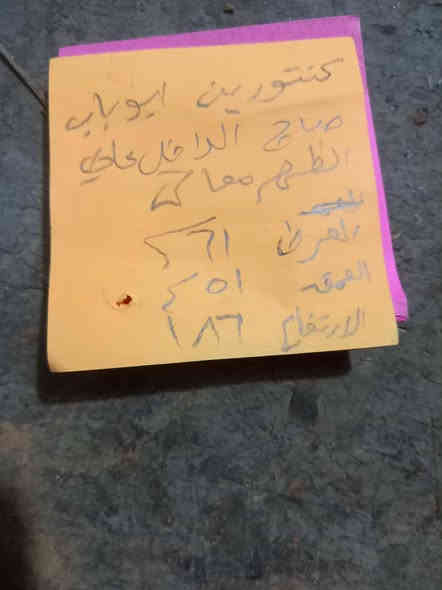 كنتورين ابو باب
صاج الداخل علي
الظهر معاكي
العرض ٢٦١
العمق ٤٥١
الارتفاع ١٨٦